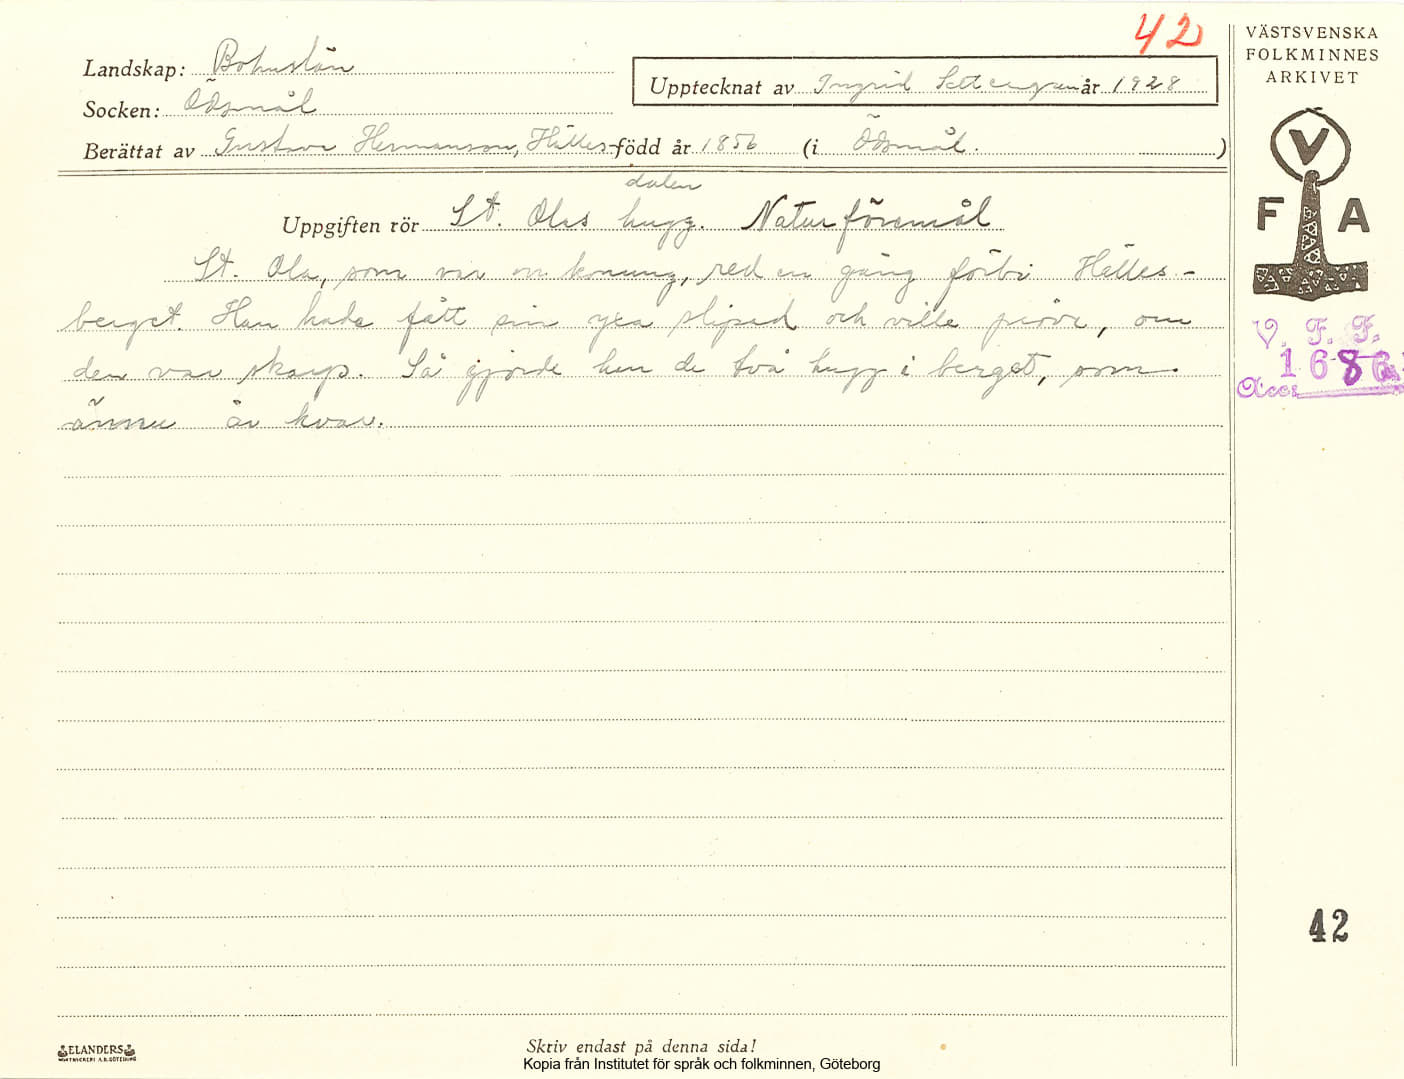 42
VÄSTSVENSKA
FOLKMINNES
ARKIVET
Landskap: Bohuslän
Upptecknat av Ingrid Settergren år 1928
Socken: Ödsmål
Berättat av Gustava Hermanson, Hälles- född år 1856 (i Ödsmål. )
dalen
Uppgiften rör St. Olas hugg. Naturföremål
V
F A
St. Ola, som var en konung, red en gång förbi Hälles-
berget. Han hade fått sin yxa slipad och ville pröva, om
den var skarp. Så gjorde han de två hugg i berget, som
ännu är kvar.
V. F. F.
168
Acc
42
ELANDERS
Skriv endast på denna sida!
Kopia från Institutet för språk och folkminnen, Göteborg